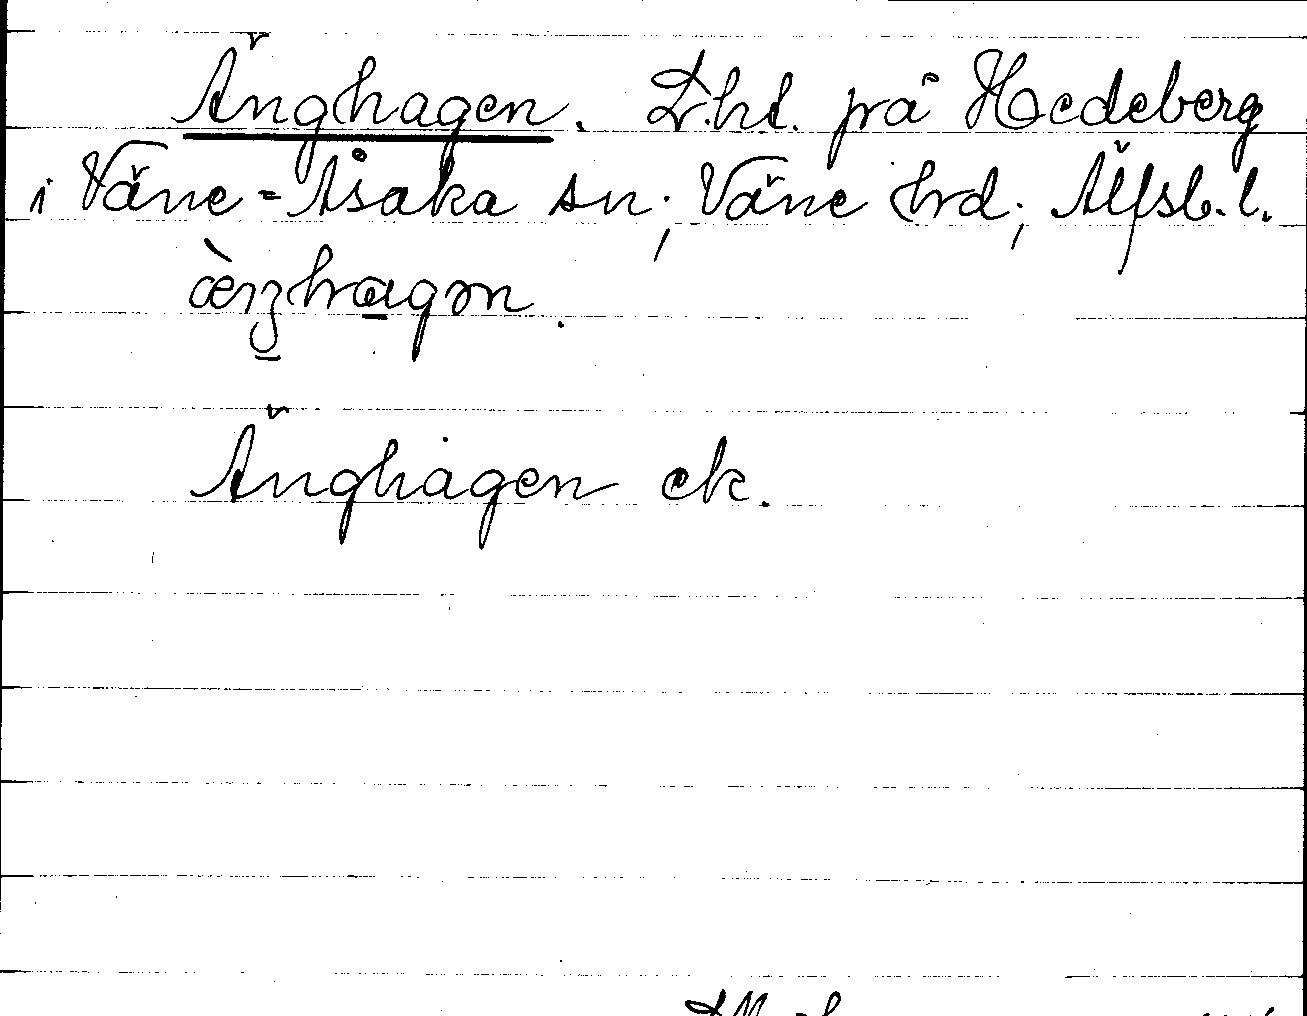 Änghagen. Lht. på Hedeberg
i Väne-Åsaka sn; Väne hrd; Älfsb. l.
Änghagen ck.